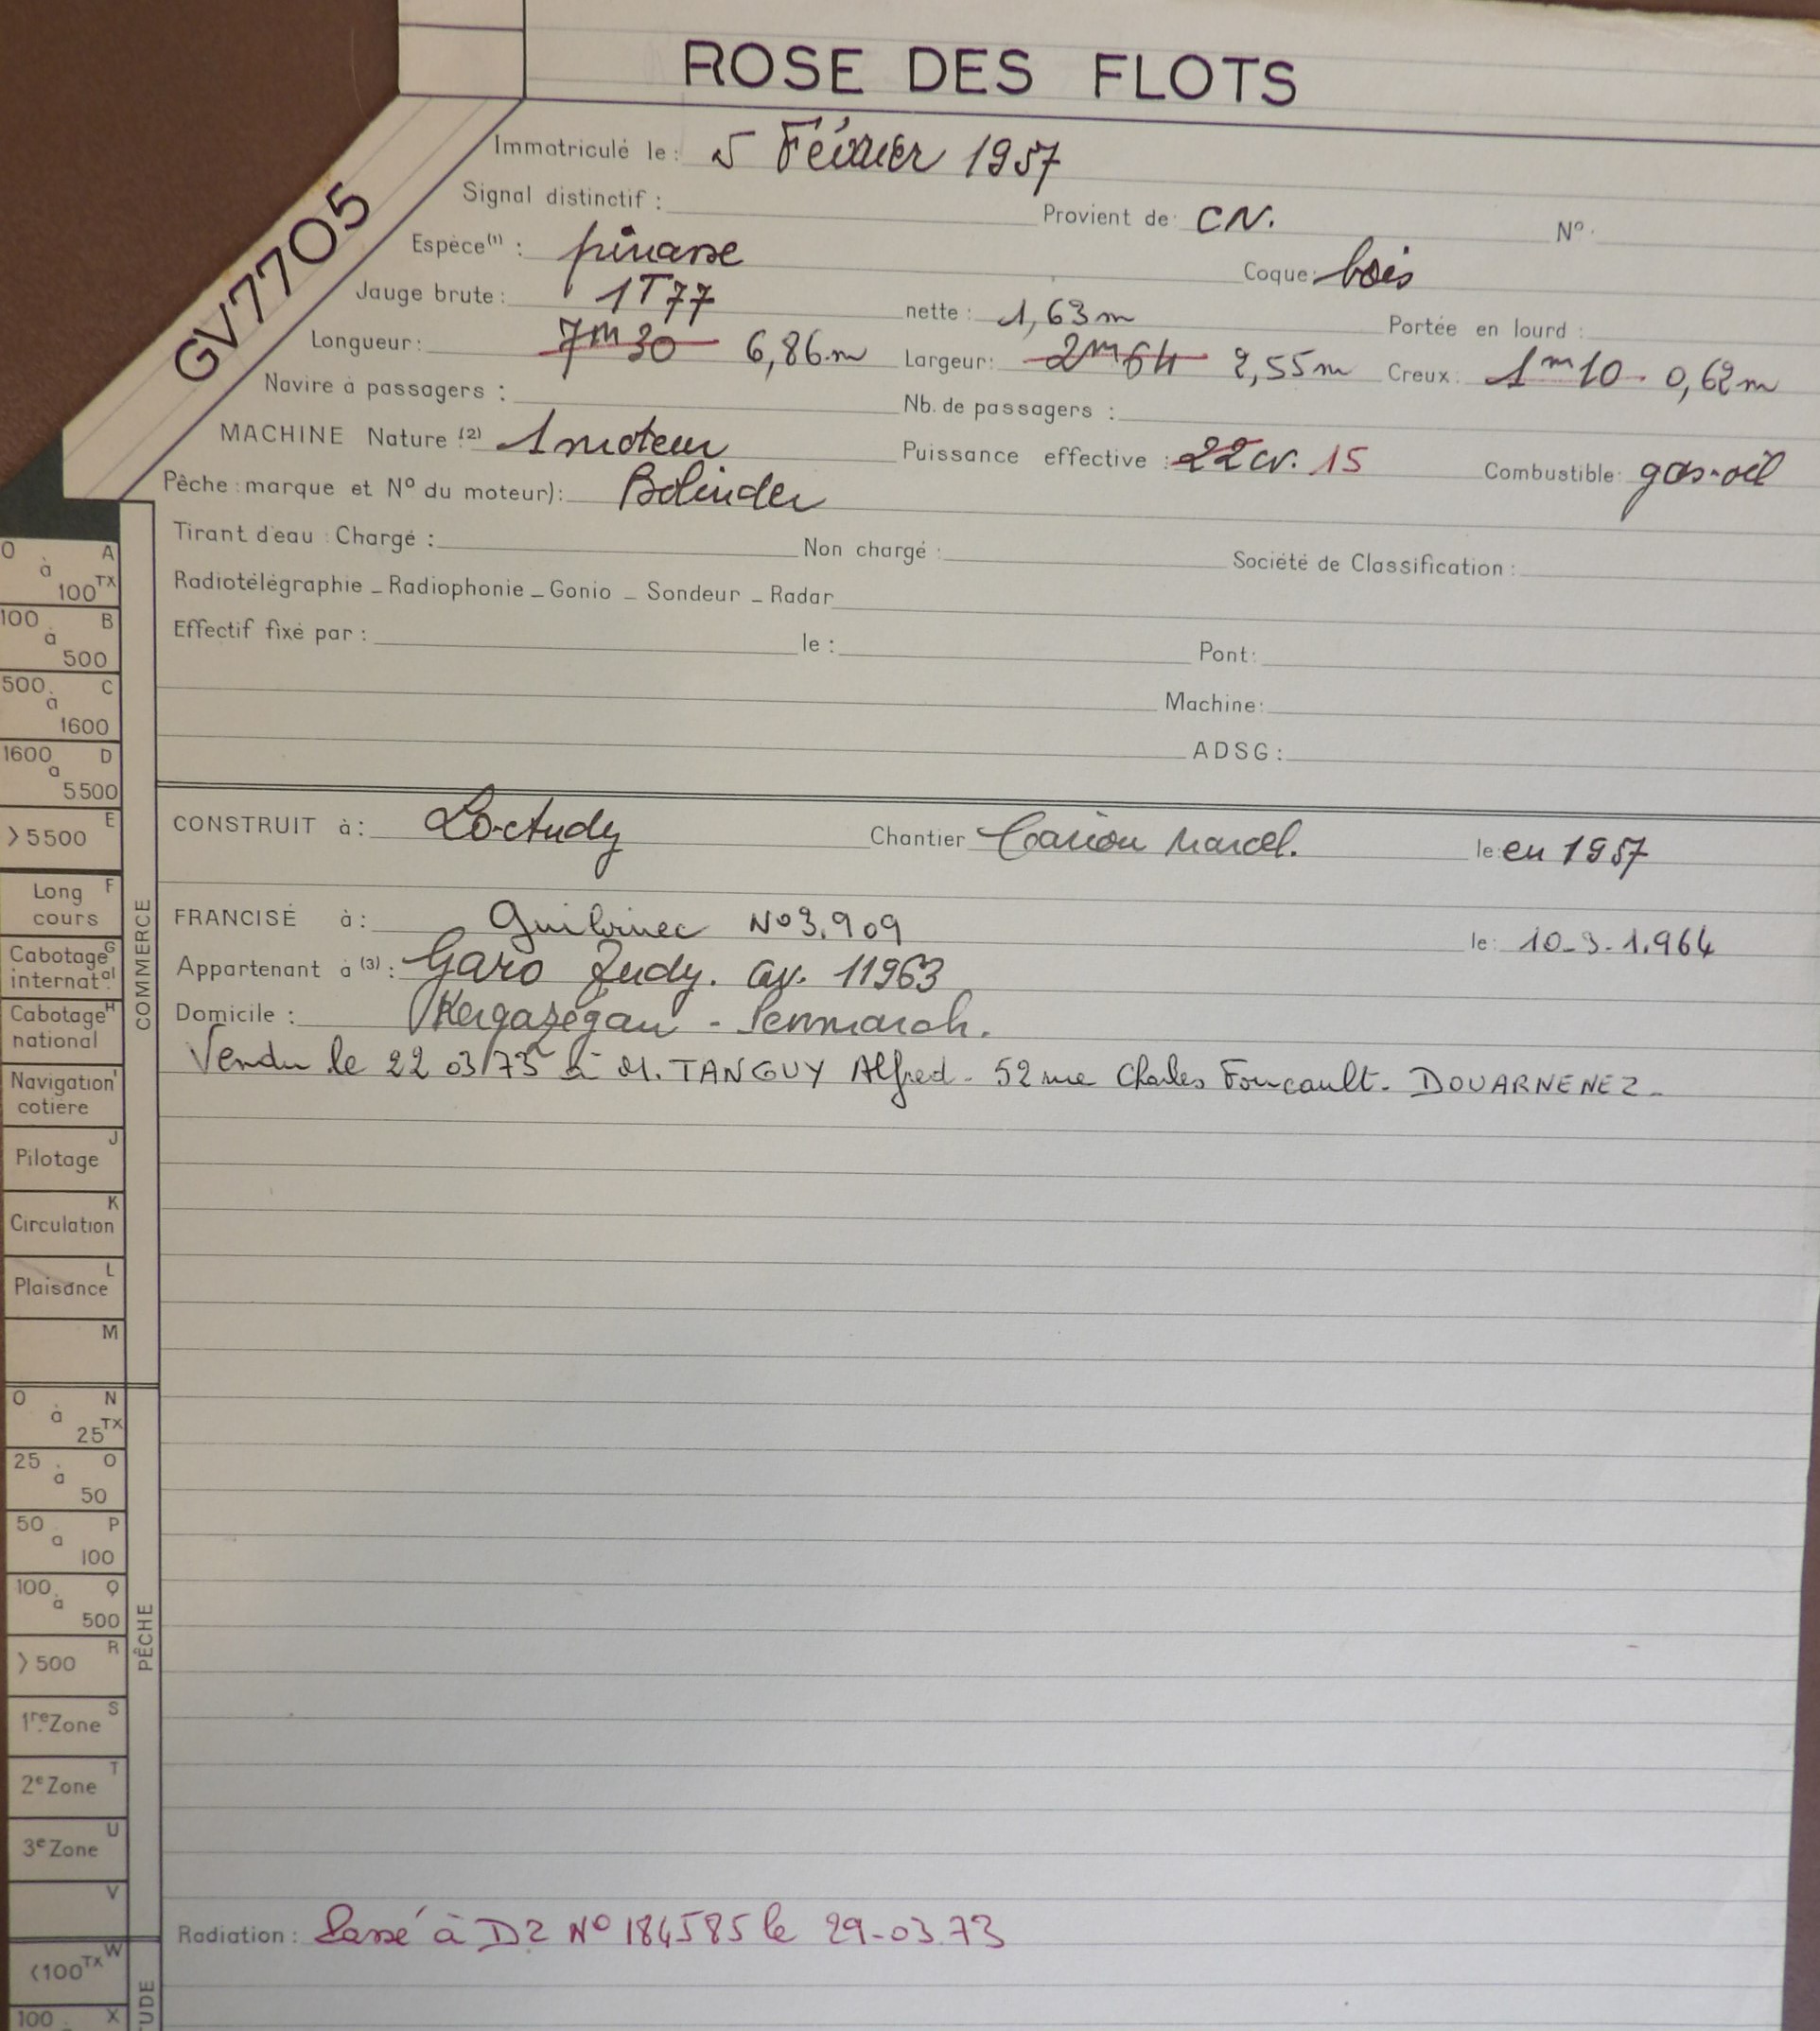 ROSE DES FLOTS
GV7705
Immatriculé le : 5 Février 1957
Signal distinctif : Provient de : CN. N° :
Espèce(1) : pinasse Coque : bois
Jauge brute : 1T77 nette : 1,63m Portée en lourd :
Longueur : 7m30 6,86m Largeur : 2m64 2,55m Creux : 1m10 0,62m
Navire à passagers : Nb. de passagers :
MACHINE Nature (2) 1 moteur Puissance effective : 22 cv. 15 Combustible : gas-oil
Pêche : marque et N° du moteur) : Bolinder
Tirant d'eau : Chargé : Non chargé : Société de Classification :
Radiotélégraphie _ Radiophonie _ Gonio _ Sondeur _ Radar
Effectif fixé par : le : Pont :
Machine :
ADSG :
CONSTRUIT à : Loctudy Chantier Cariou Marcel. le : en 1957
FRANCISÉ à : Guilvinec N° 3.909 le : 10-3-1.964
Appartenant à (3) : Garo Tudy. Gv. 11963
Domicile : Kergazégan - Penmarch.
Vendu le 22 03/73 à M. TANGUY Alfred - 52 rue Charles Foucault - DOUARNENEZ -
Radiation : Passé à DZ N° 184585 le 29-03.73
COMMERCE
0 à 100TX A
100 à 500 B
500 à 1600 C
1600 à 5500 D
>5500 E
Long cours F
Cabotage internatal G
Cabotage national H
Navigation cotière I
Pilotage J
Circulation K
Plaisance L
M
PÊCHE
0 à 25TX N
25 à 50 O
50 à 100 P
100 à 500 Q
>500 R
1re Zone S
2e Zone T
3e Zone U
V
<100TX W
100 X
UDE